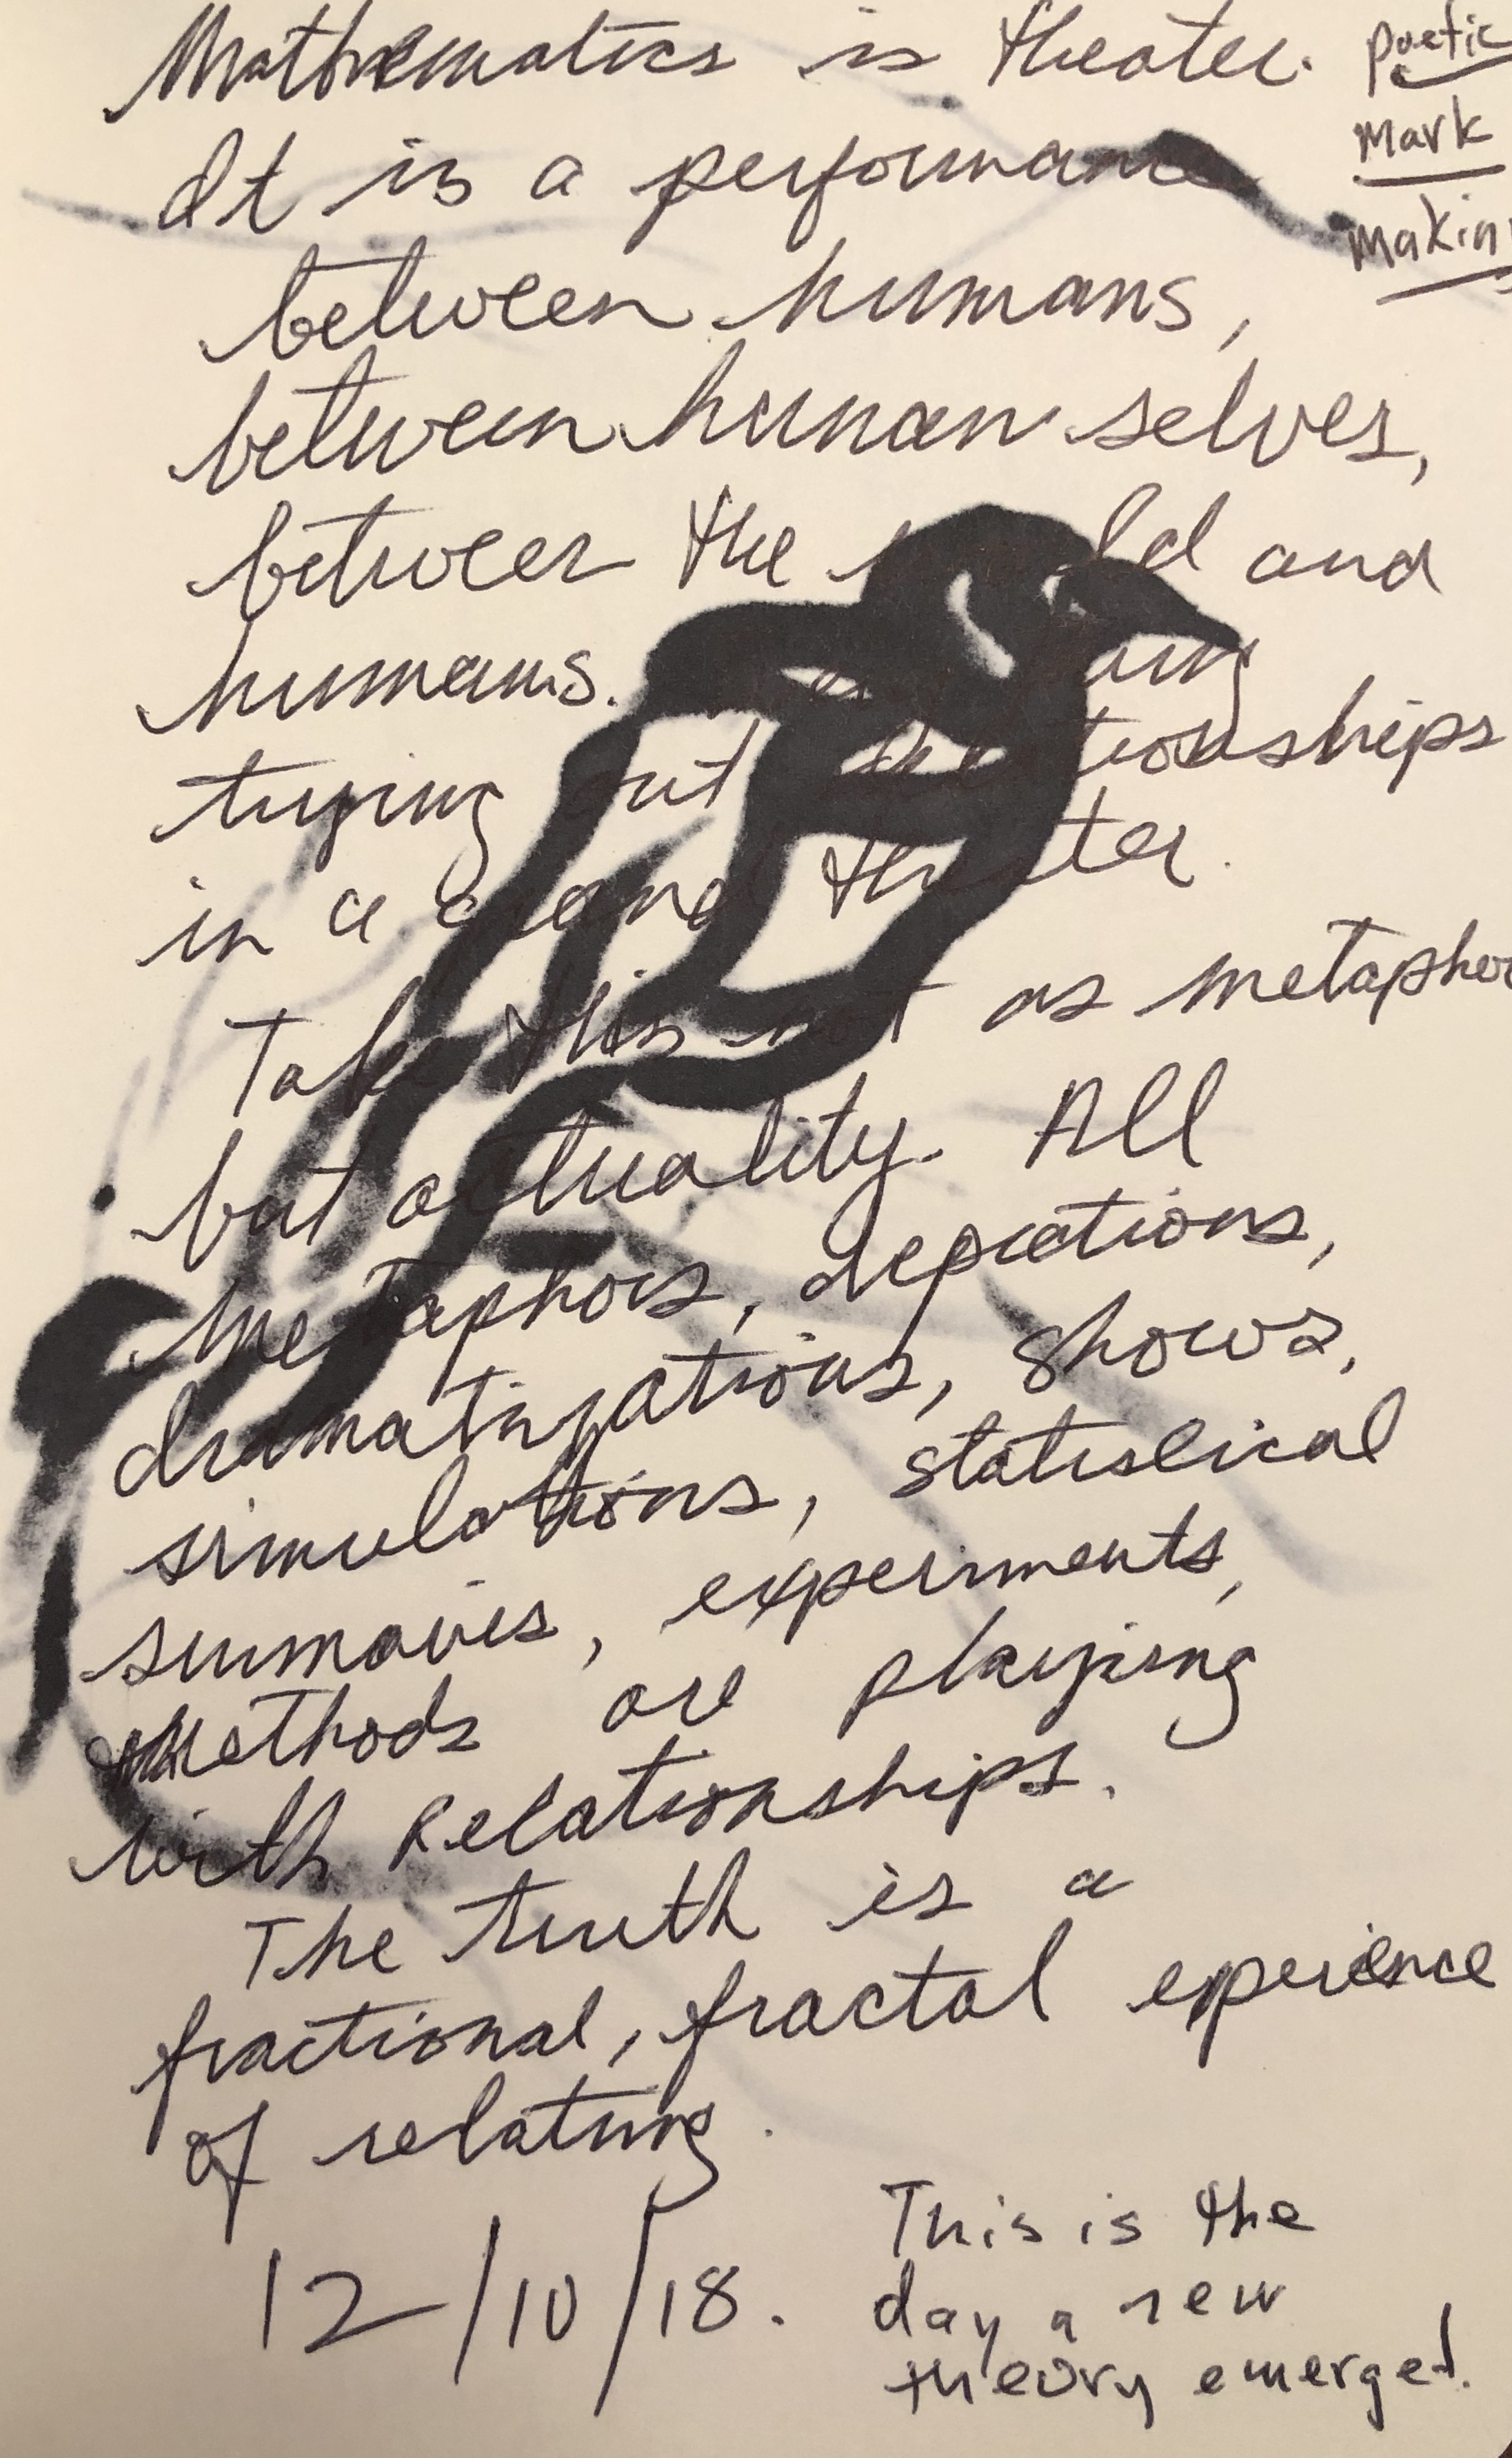 Mathematics is theater.
It is a performance
between humans,
between human selves,
between the world and
humans.
trying out relationships
in a grand theater.
Take this not as metaphor
but actuality. All
metaphors, depictions,
dramatizations, shows,
simulations, statistical
summaries, experiments,
methods are playing
with Relationships.
The truth is a
fractional, fractal experience
of relating.
12/10/18.
This is the
day a new
theory emerged.
poetic
Mark
Making